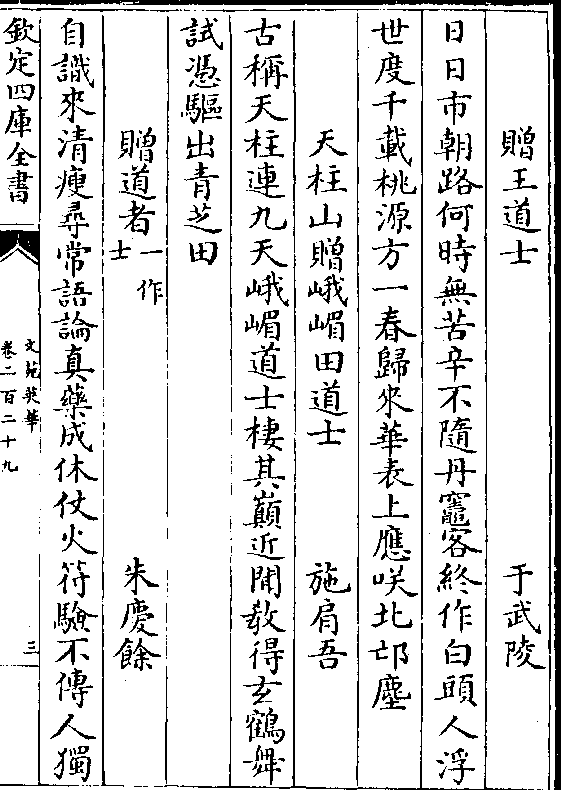 贈王道士 于武陵
日日市朝路何時無苦辛不隨丹竈客終作白頭人浮
世度千載桃源方一春歸來華表上應咲北邙塵
天柱山贈峨嵋田道士 施肩吾
古稱天柱連九天峨嵋道士棲其巔近聞教得玄鶴舞
試憑驅出青芝田
贈道者一作士 朱慶餘
自識來清瘦尋常語論真藥成休伏火符驗不傳人獨
欽定四庫全書
文苑英華
卷二百二十九
三